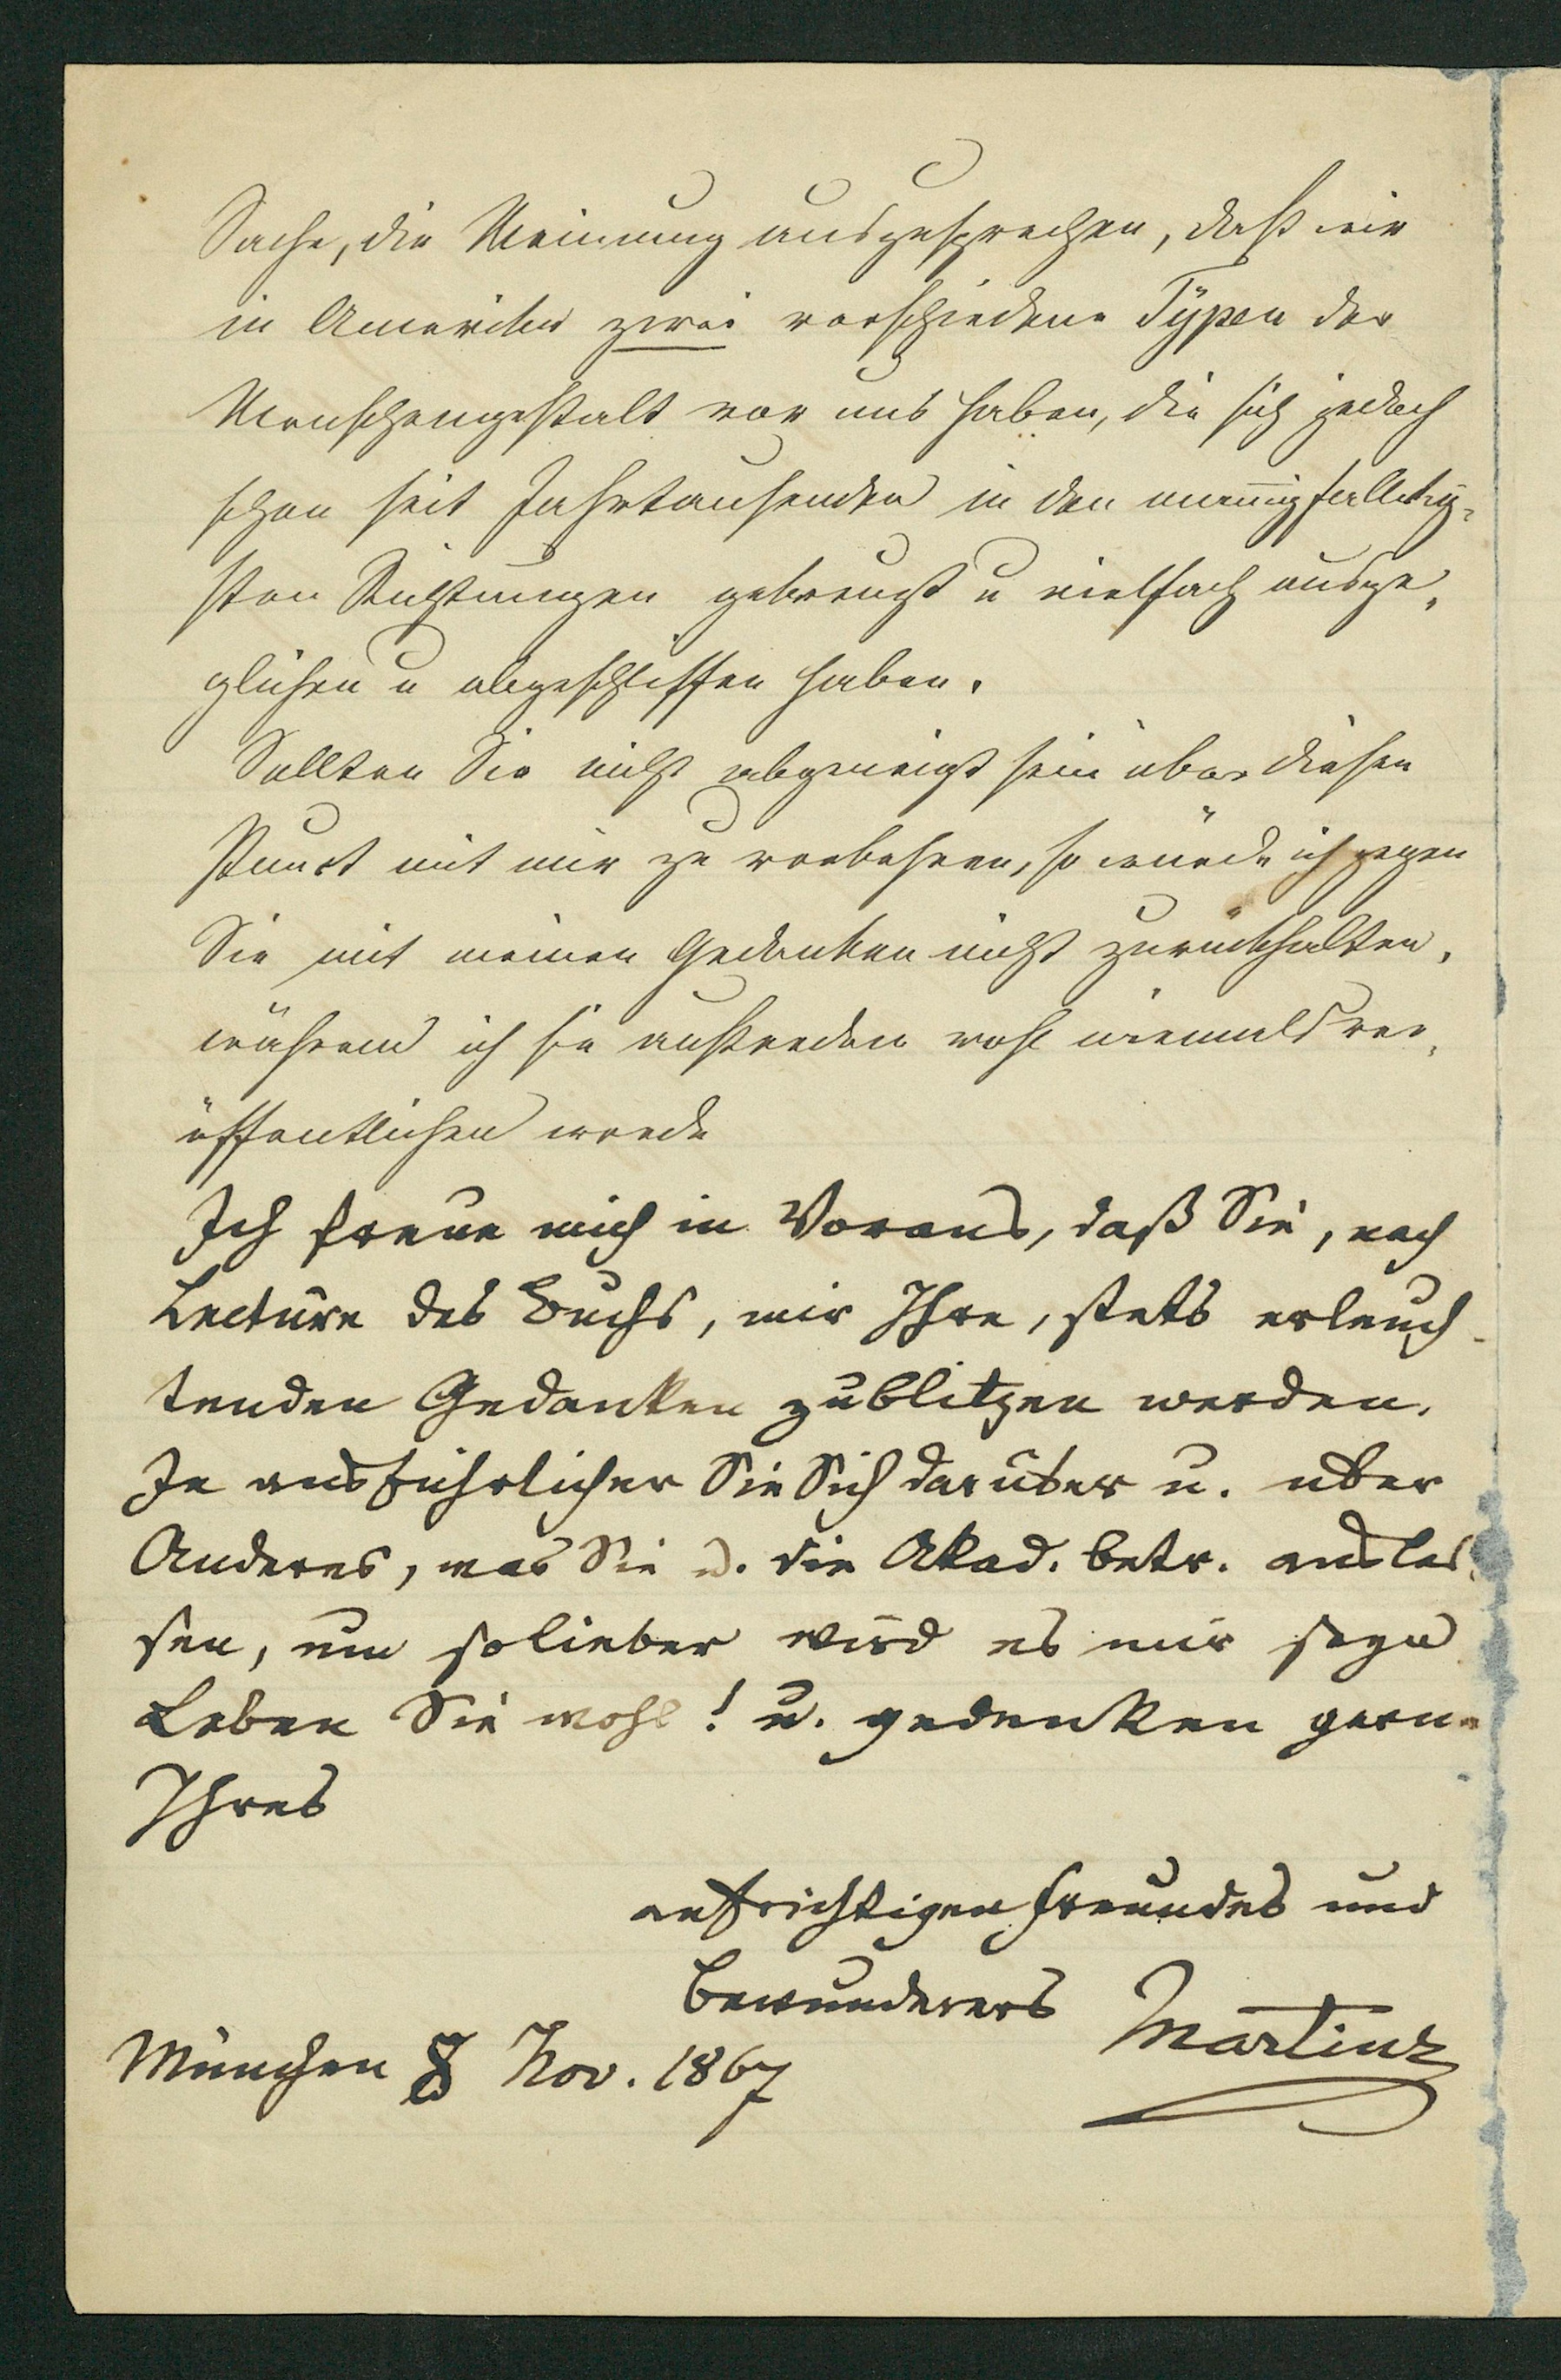 Sache, die Meinung ausgesprochen, daß wir
in America zwei verschiedene Typen der
Menschengestalt vor uns haben, die sich jedoch
schon seit Jahrtausenden in den mannigfaltig-
sten Richtungen gekreuzt u vielfach ausge-
glichen u abgeschliffen haben.
Sollten Sie nicht abgeneigt sein über diesen
Punct mit mir zu verkehren, so würde ich gegen
Sie mit meinen Gedanken nicht zurückhalten,
während ich sie außerdem wohl niemals ver-
öffentlichen werde
Ich freue mich in Voraus, daß Sie, nach
Lectüre des Buchs, mir Ihre, stets erleuch-
tenden Gedanken zublitzen werden.
Je ausführlicher Sie Sich darüber u. über
Anderes, was Sie u. die Akad. betr. auslas-
sen, um so lieber wird es mir seyn
Leben Sie wohl! u. gedenken gern
Ihres
aufrichtigen Freundes und
Bewunderers Martius
München 8 Nov. 1867